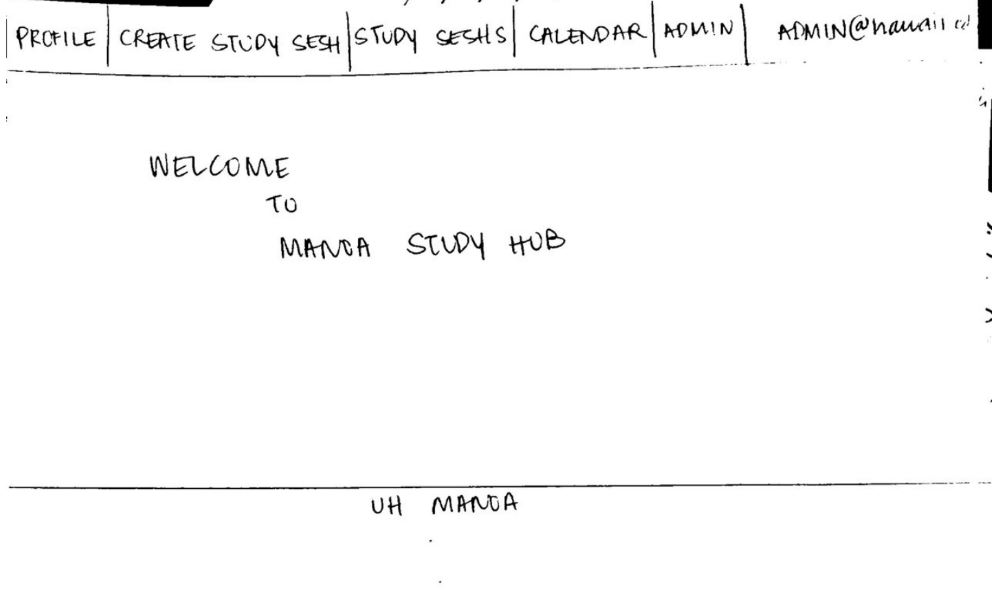 PROFILE CREATE STUDY SESH STUDY SESHS CALENDAR ADMIN
WELCOME
TO
MANOA STUDY HUB
UH MANOA